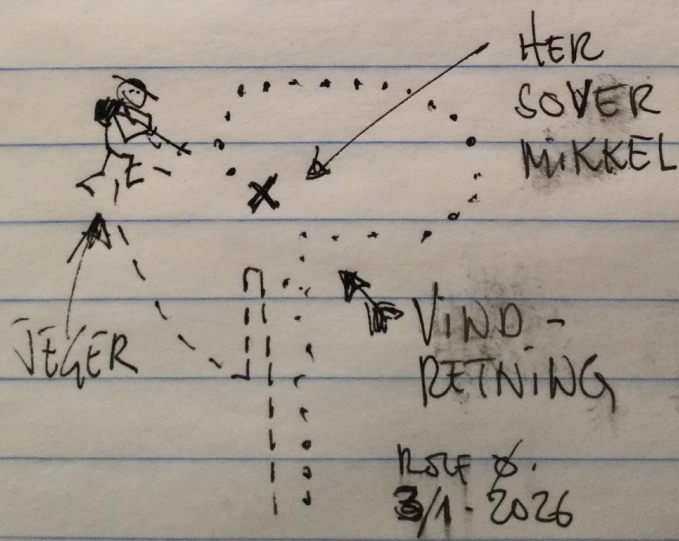 HER
SOVER
MIKKEL
JEGER
VIND-
RETNING
ROLF Ø.
3/1-2026